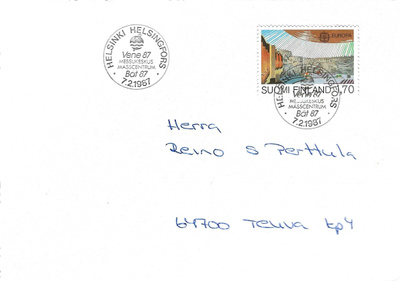 HELSINKI HELSINGFORS
Vene 87
MESSUKESKUS
MÄSSCENTRUM
Båt 87
7.2.1987
EUROPA
SUOMI FINLAND 1,70
HELSINKI HELSINGFORS
Vene 87
MESSUKESKUS
MÄSSCENTRUM
Båt 87
7.2.1987
Herra
Reino S Perttula
64700 Teuva kp4